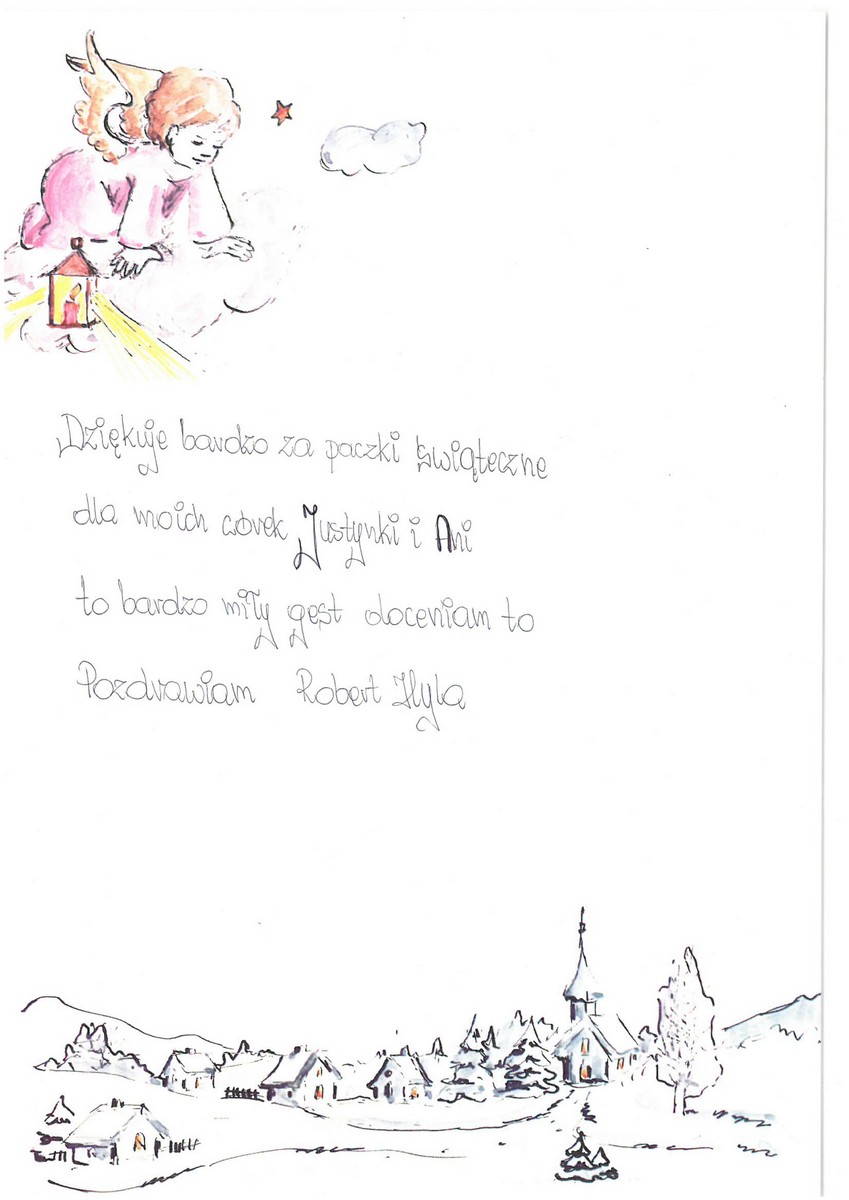 Dziękuje bardzo za paczki Świąteczne
dla moich córek Justynki i Ani
to bardzo miły gest doceniam to
Pozdrawiam Robert Hyla